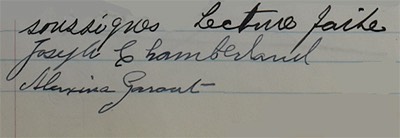 soussignes Lecture faite
Joseph Chamberland
Alexina Garant